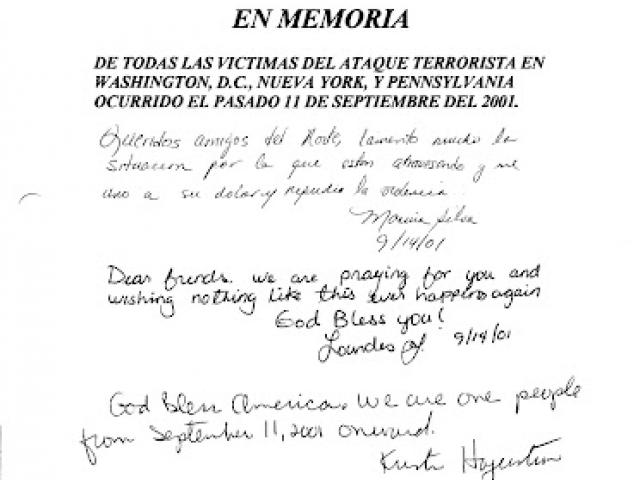 EN MEMORIA
DE TODAS LAS VICTIMAS DEL ATAQUE TERRORISTA EN
WASHINGTON, D.C., NUEVA YORK, Y PENNSYLVANIA
OCURRIDO EL PASADO 11 DE SEPTIEMBRE DEL 2001.
Queridos amigos del Norte, lamento mucho la
situacion por la que estan atravesando y me
uno a su dolor y repudio la violencia.
Silva
9/14/01
Dear friends. we are praying for you and
wishing nothing like this ever happens again
God Bless you!
Lourdes 9/14/01
God Bless America. We are one people
from September 11, 2001 onward.